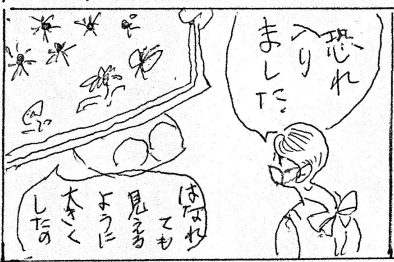 恐れ
入り
ました。
はなれ
ても
見える
ように
大きく
したの